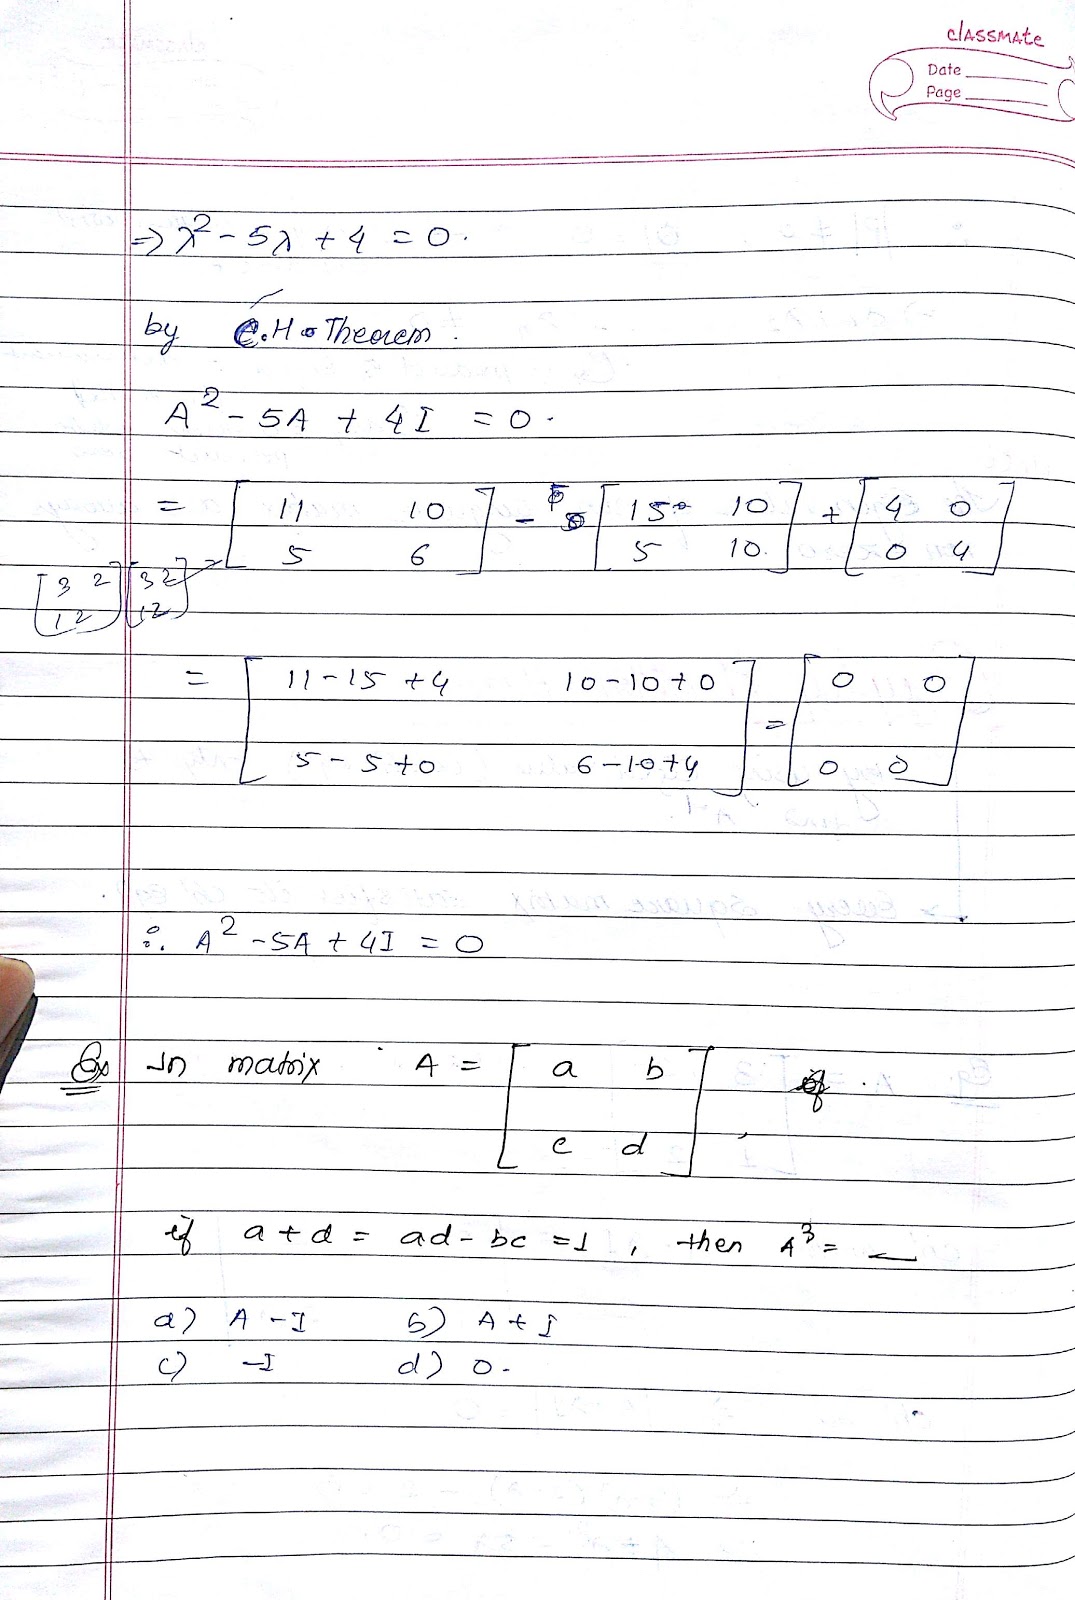 classmate
Date
Page
⇒ λ² - 5λ + 4 = 0.
by C.H. Theorem.
A² - 5A + 4I = 0.
= [ 11 10 ] - [ 15 10 ] + [ 4 0 ]
[ 5 6 ] [ 5 10 ] [ 0 4 ]
[ 3 2 ] [ 3 2 ]
[ 1 2 ] [ 1 2 ]
= [ 11-15+4 10-10+0 ] = [ 0 0 ]
[ 5-5+0 6-10+4 ] [ 0 0 ]
∴ A² - 5A + 4I = 0
Ex In matrix A = [ a b ]
[ c d ] ,
if a+d = ad-bc = 1, then A³ = _
a) A-I b) A+I
c) -I d) 0.